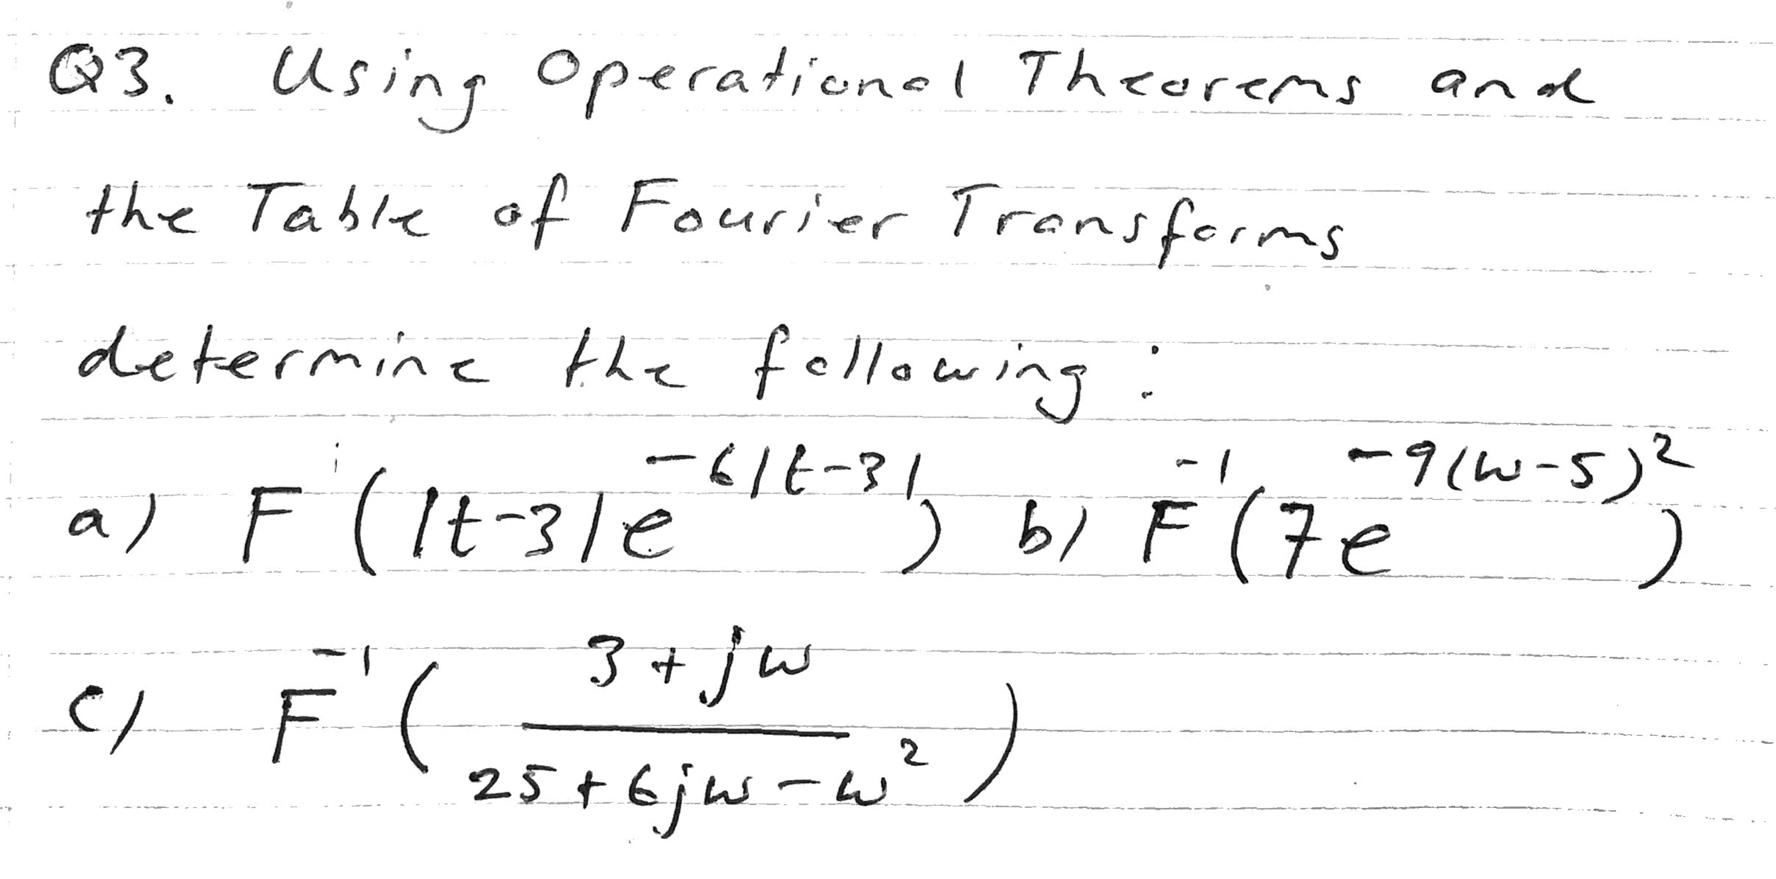 Q3. Using Operational Theorems and
the Table of Fourier Transforms
determine the following :
a) F(|t-3|e^{-6|t-3|}) b) F^{-1}(7e^{-9(w-5)^2})
c) F^{-1}(\frac{3+jw}{25+6jw-w^2})